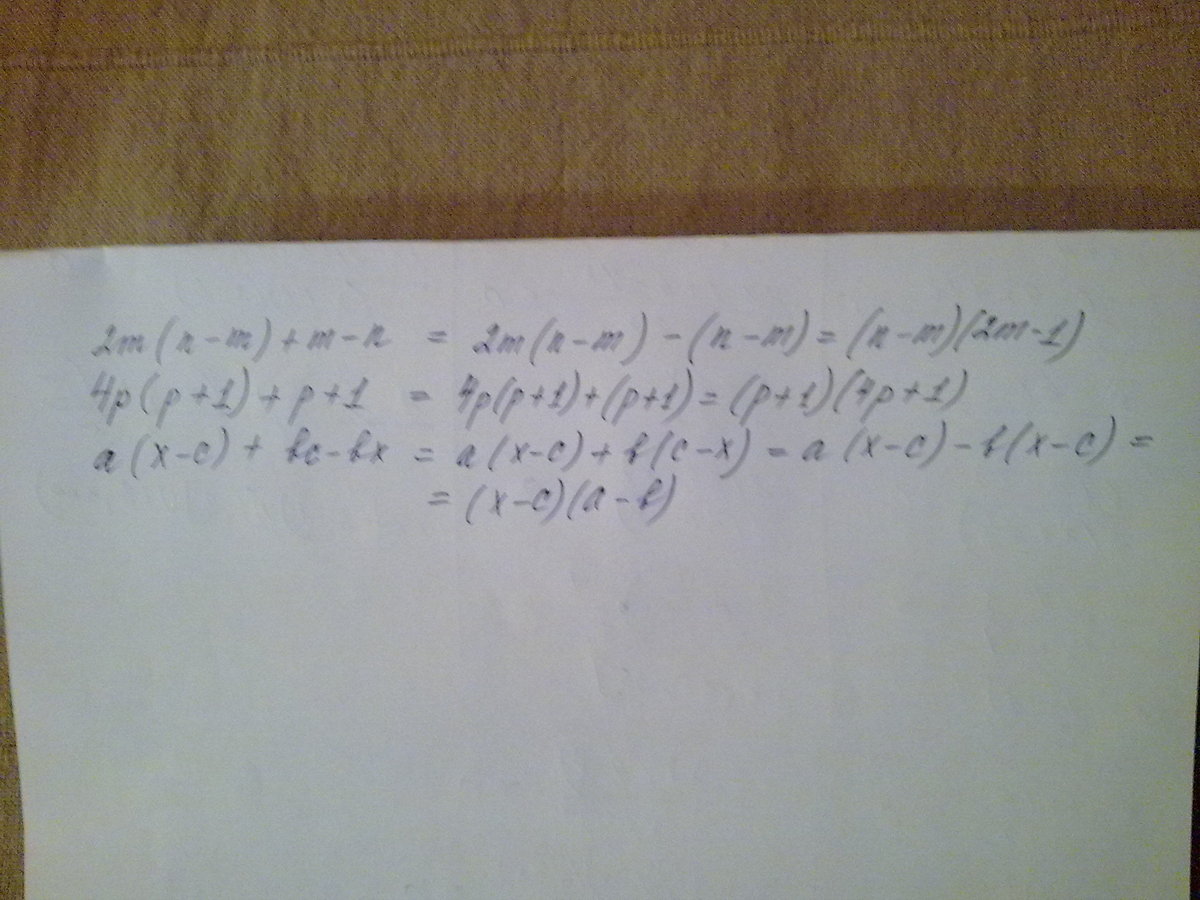 2m(n-m)+m-n = 2m(n-m)-(n-m)=(n-m)(2m-1)
4p(p+1)+p+1 = 4p(p+1)+(p+1)=(p+1)(4p+1)
a(x-c)+bc-bx = a(x-c)+b(c-x)=a(x-c)-b(x-c)=
=(x-c)(a-b)